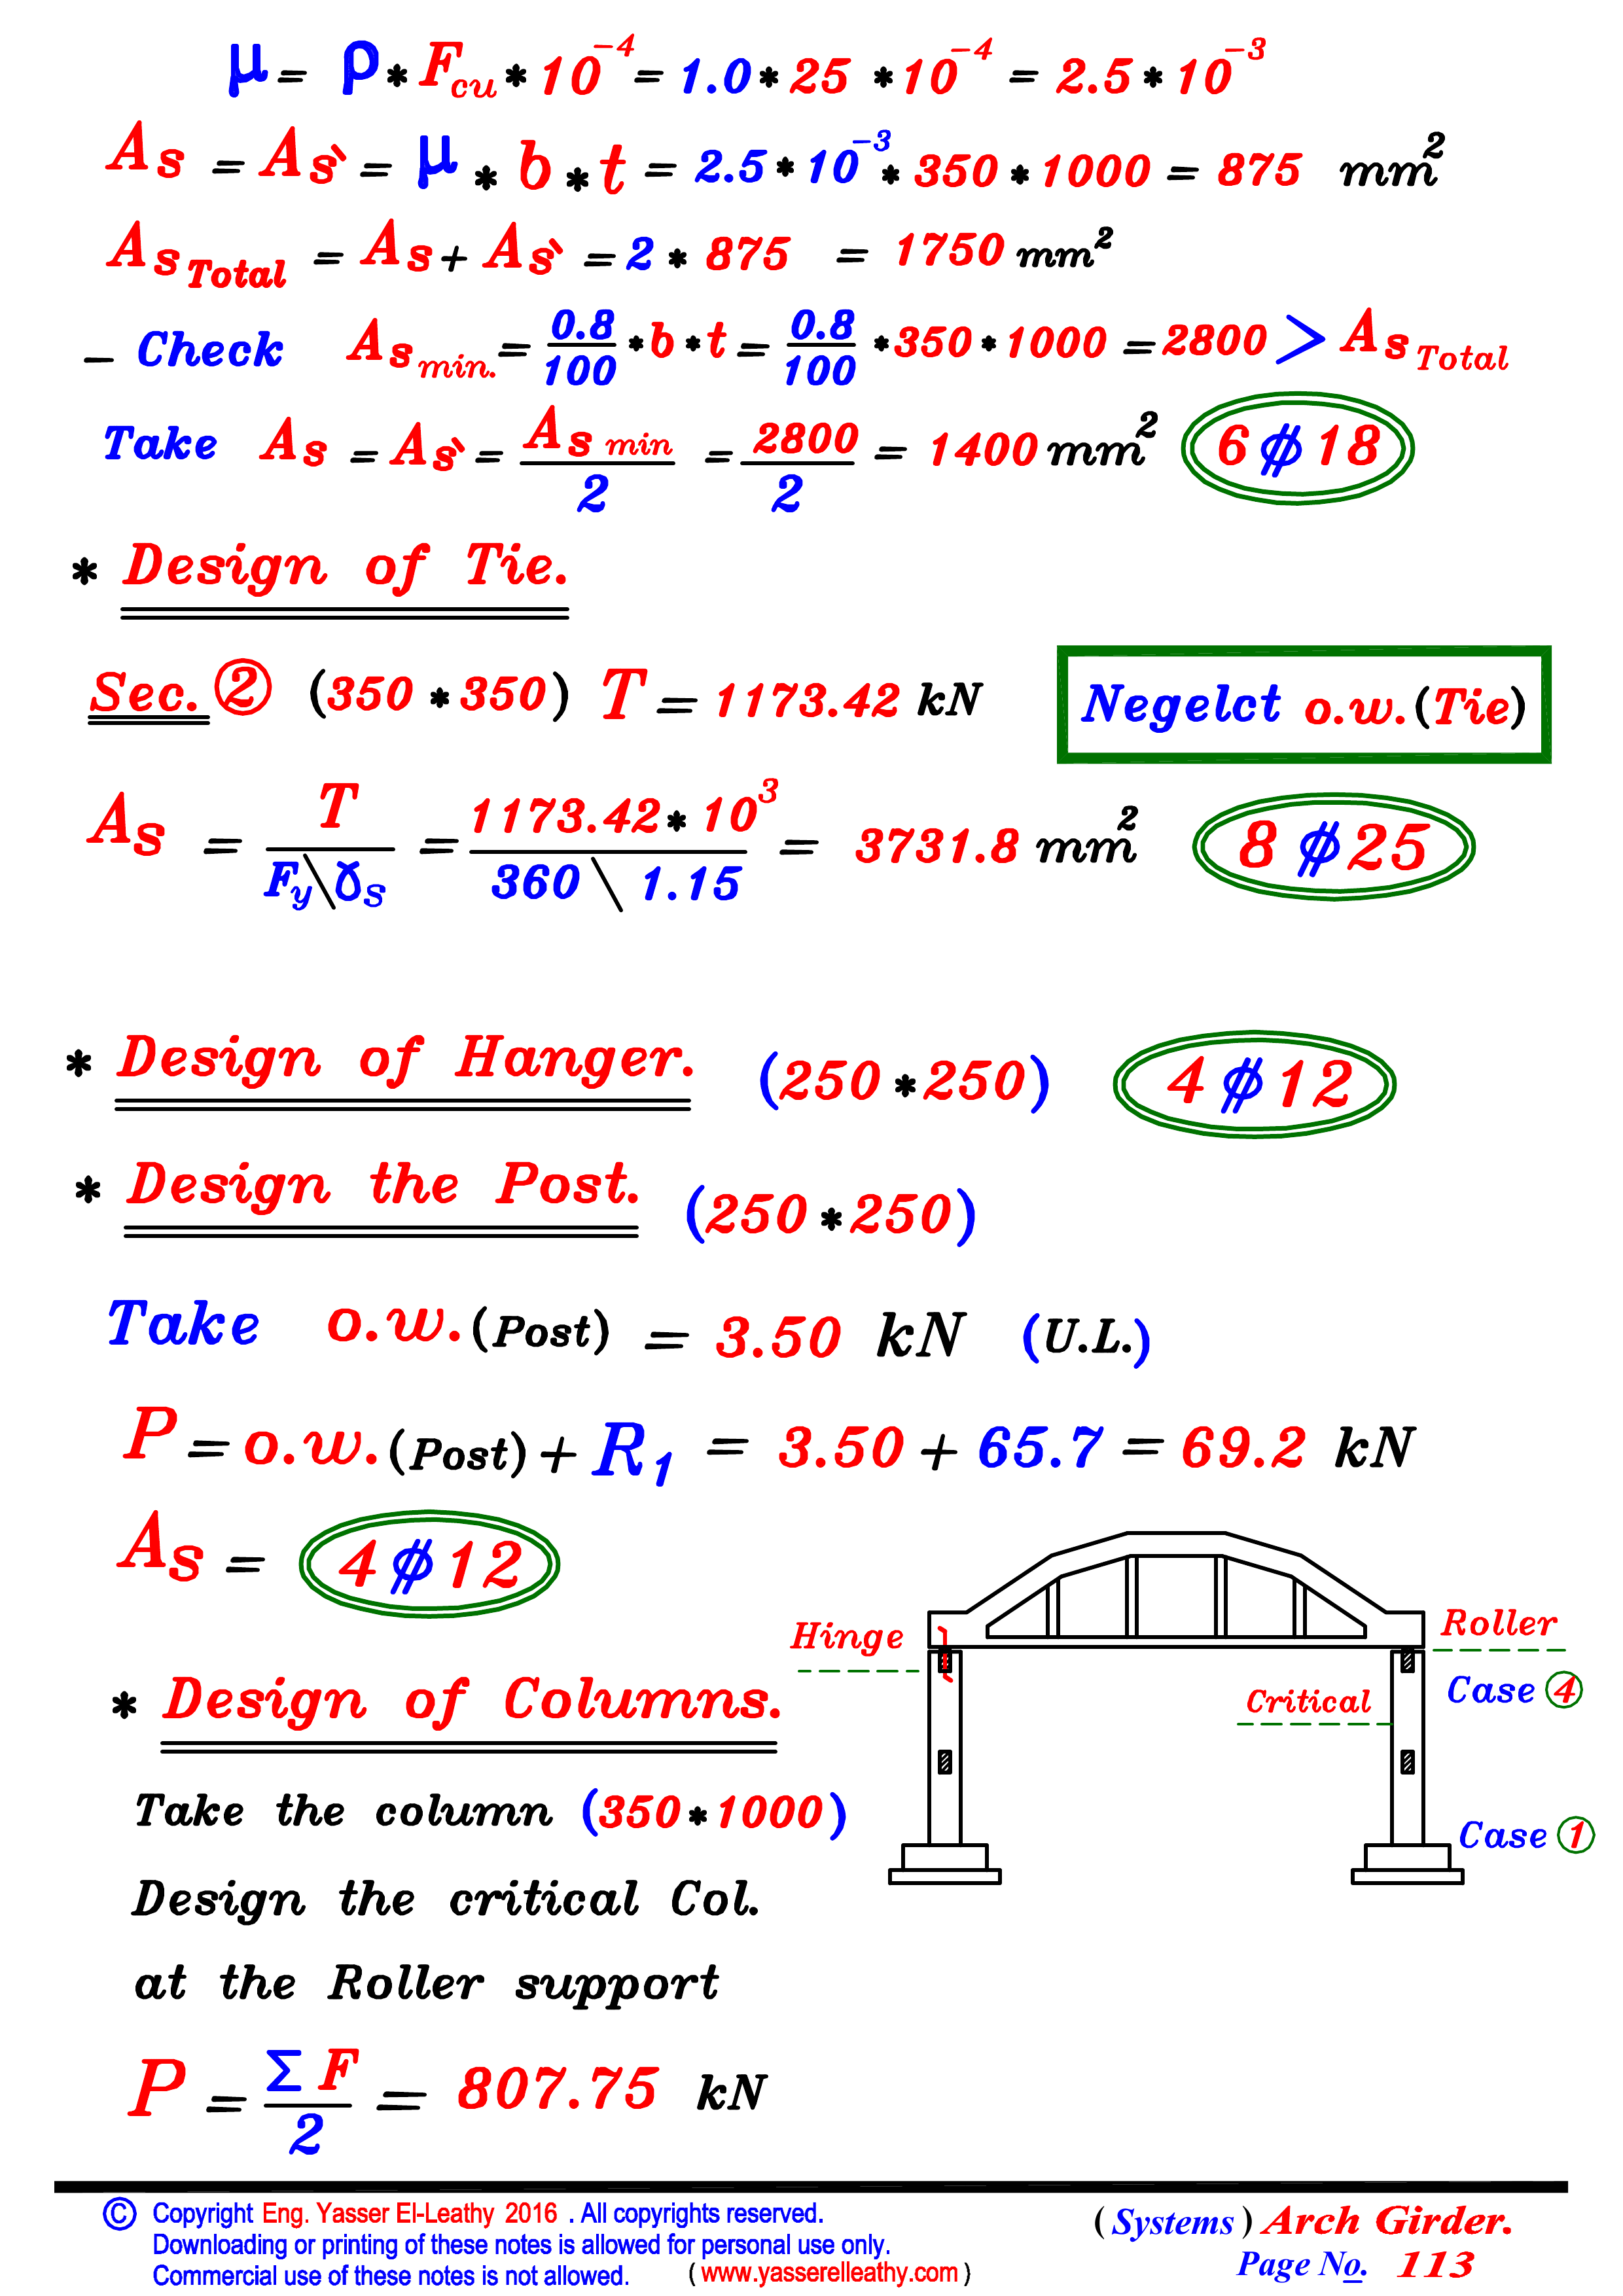 μ = ρ * Fcu * 10⁻⁴ = 1.0 * 25 * 10⁻⁴ = 2.5 * 10⁻³
As = As` = μ * b * t = 2.5 * 10⁻³ * 350 * 1000 = 875 mm²
As Total = As + As` = 2 * 875 = 1750 mm²
– Check As min. = 0.8/100 * b * t = 0.8/100 * 350 * 1000 = 2800 > As Total
Take As = As` = As min / 2 = 2800 / 2 = 1400 mm² 6 ⌽ 18
* Design of Tie.
Sec. ② (350 * 350) T = 1173.42 kN Negelct o.w.(Tie)
As = T / Fy\γs = 1173.42 * 10³ / 360 \ 1.15 = 3731.8 mm² 8 ⌽ 25
* Design of Hanger. (250 * 250) 4 ⌽ 12
* Design the Post. (250 * 250)
Take o.w.(Post) = 3.50 kN (U.L.)
P = o.w.(Post) + R1 = 3.50 + 65.7 = 69.2 kN
As = 4 ⌽ 12
Hinge
Roller
Case ④
Critical
Case ①
* Design of Columns.
Take the column (350 * 1000)
Design the critical Col.
at the Roller support
P = Σ F / 2 = 807.75 kN
© Copyright Eng. Yasser El-Leathy 2016 . All copyrights reserved.
Downloading or printing of these notes is allowed for personal use only.
Commercial use of these notes is not allowed. ( www.yasserelleathy.com )
( Systems ) Arch Girder.
Page No. 113